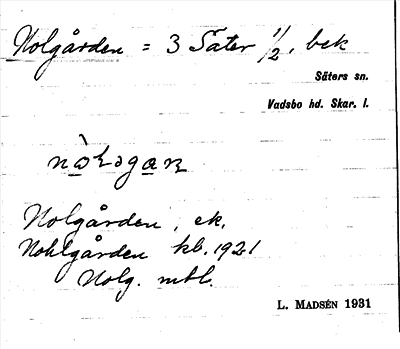 Nolgården = 3 Säter 1/2, bek
Säters sn.
Vadsbo hd. Skar. l.
Nolgården, ek.
Nohlgården kb. 1921
Nolg. mbl.
L. MADSÉN 1931